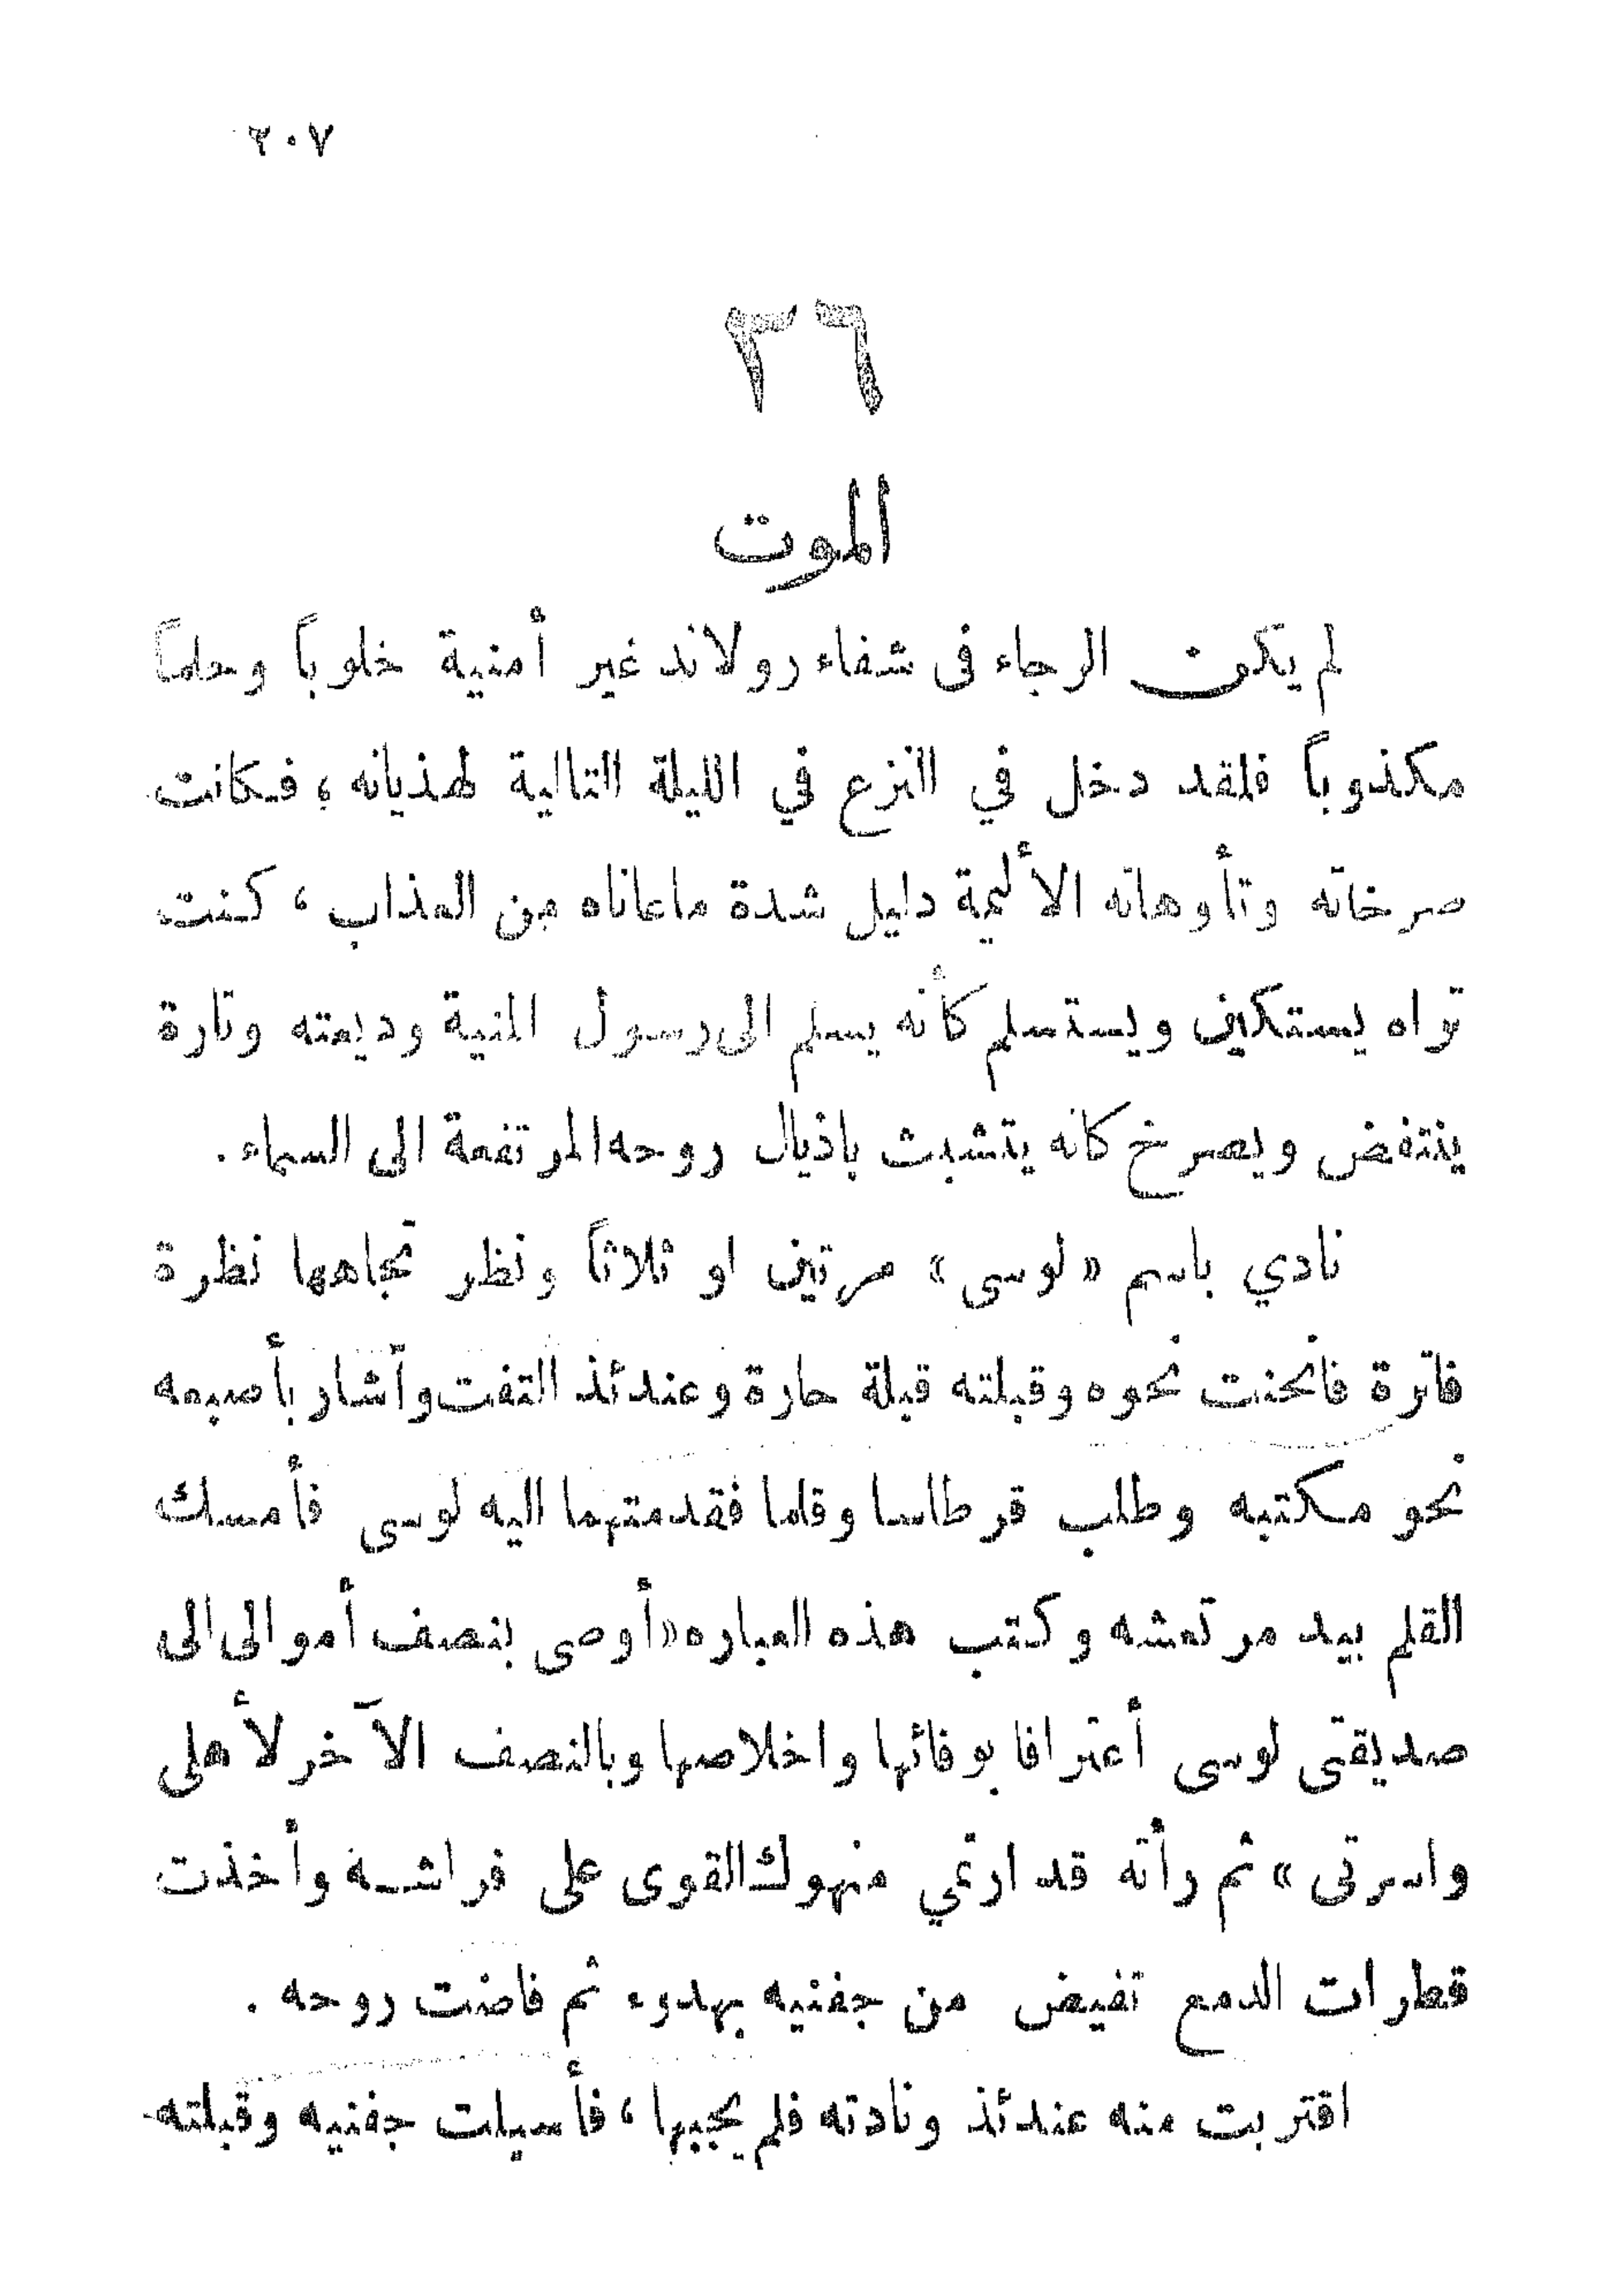 ٢٠٧
٣٦
الموت
لم يكن الرجاء فى شفاء رولاند غير أمنية خلوباً وحلماً
مكذوباً فلقد دخل في النزع في الليلة التالية لهذيانه ، فكانت
صرخاته وتأوهاته الأليمة دليل شدة ماعاناه من العذاب ، كنت
تراه يستكين ويستسلم كأنه يسلم الى رسول المنية وديعته وتارة
ينتفض ويصرخ كانه يتشبث باذيال روحه المرتفعة الى السماء .
نادي باسم « لوسى » مرتين او ثلاثاً ونظر تجاهها نظرة
فاترة فانحنت نحوه وقبلته قبلة حارة وعندئذ التفت وآشار بأصبعه
نحو مكتبه وطلب قرطاسا وقلما فقدمتهما اليه لوسى فأمسك
القلم بيد مرتعشه وكتب هذه العباره «أوصى بنصف أموالى الى
صديقتى لوسى أعترافا بوفائها واخلاصها وبالنصف الآخر لأهلى
واسرتى » ثم رأته قد ارتمي منهوك القوى على فراشه وأخذت
قطرات الدمع تفيض من جفنيه بهدوء ثم فاضت روحه .
اقتربت منه عندئذ ونادته فلم يجبها ، فأسبلت جفنيه وقبلته